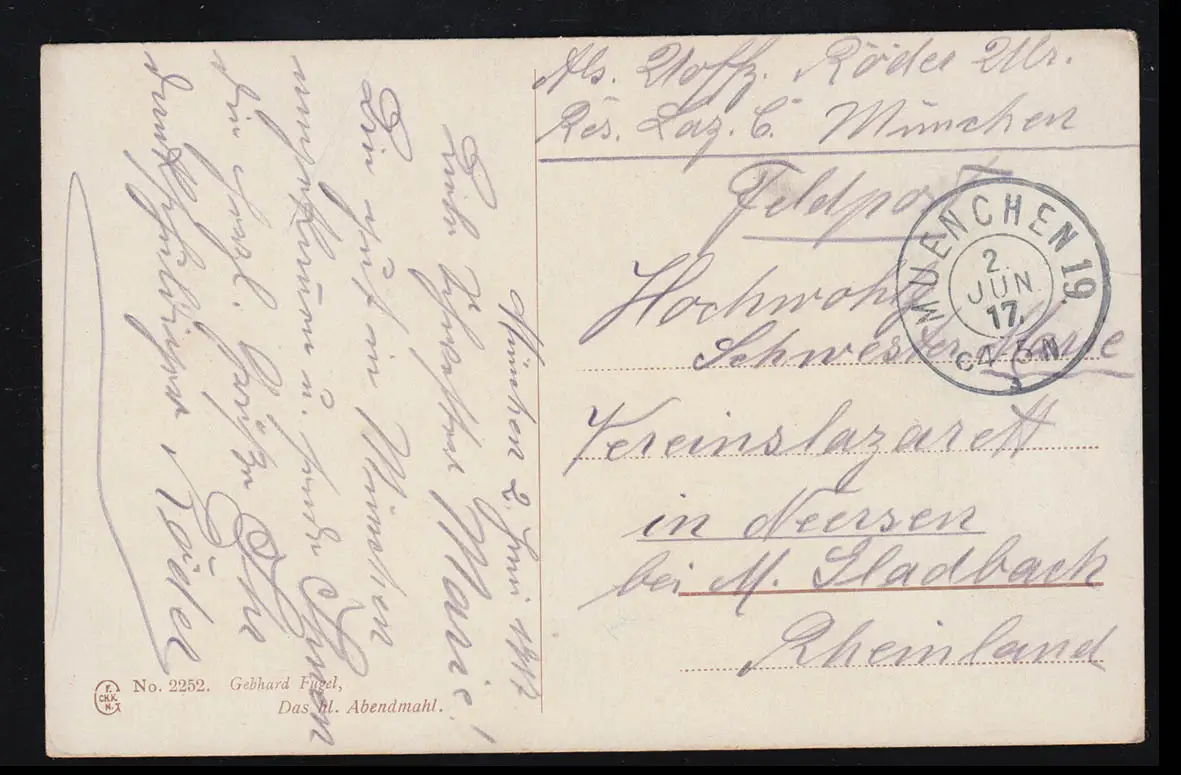 Abs. Uoffz. Röder Ulr.
Res. Laz. C. München
Feldpost
Hochwohlg.
Schwester Marie
Vereinslazarett
in Neersen
bei M. Gladbach
Rheinland
MUENCHEN 19.
2.
JUN.
17.
4-5 N
München 2. Juni 1917
Liebe Schwester Marie!
Bin gut in München
angekommen u. sende Ihnen
die herzl. Grüße Ihr
dankschuldigster Röder
F.
CH.K.
N.
No. 2252. Gebhard Fugel,
Das hl. Abendmahl.